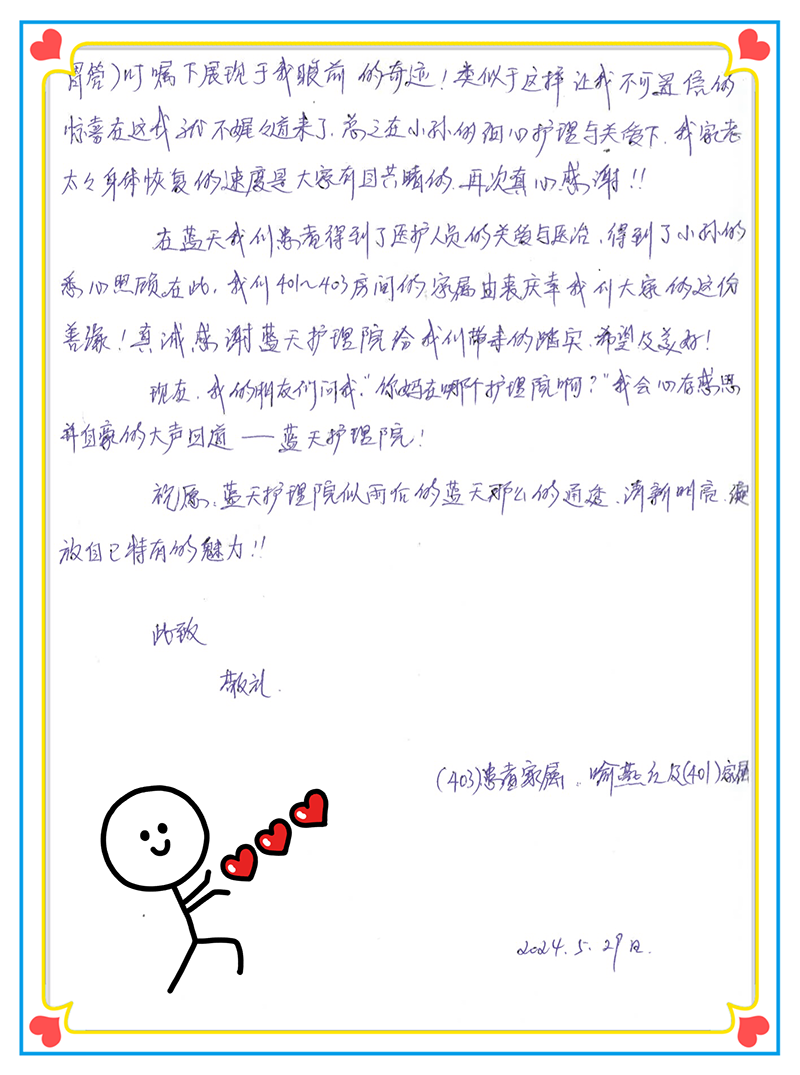 胃管）叮嘱下展现于我眼前的奇迹！类似于这样让我不可置信的
惊喜在这我就不娓娓道来了，总之在小孙的细心护理与关爱下，我家老
太太身体恢复的速度是大家有目共睹的，再次真心感谢！！
在蓝天我们患者得到了医护人员的关爱与医治，得到了小孙的
悉心照顾，在此，我们401～403房间的家属由衷庆幸我们大家的这份
善缘！真诚感谢蓝天护理院给我们带来的踏实、希望及美好！
现在，我的朋友们问我，“你妈在哪个护理院啊？”我会心存感恩
并自豪的大声回道——蓝天护理院！
祝愿，蓝天护理院似雨后的蓝天那么的通透、清新明亮、绽
放自己特有的魅力！！
此致
敬礼．
（403）患者家属．喻燕 及（401）家属
2024.5.29日．